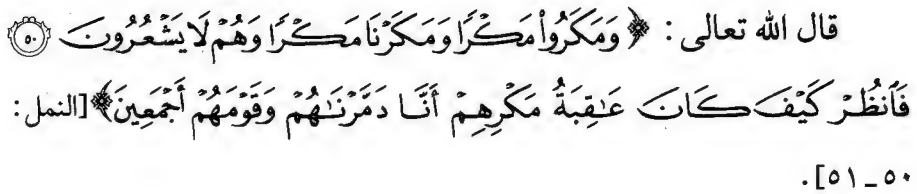 قال الله تعالى: ﴿وَمَكَرُواْ مَكْرًا وَمَكَرْنَا مَكْرًا وَهُمْ لَا يَشْعُرُونَ ۝٥٠
فَٱنظُرْ كَيْفَ كَانَ عَٰقِبَةُ مَكْرِهِمْ أَنَّا دَمَّرْنَٰهُمْ وَقَوْمَهُمْ أَجْمَعِينَ﴾ [النمل:
٥٠ـ٥١].